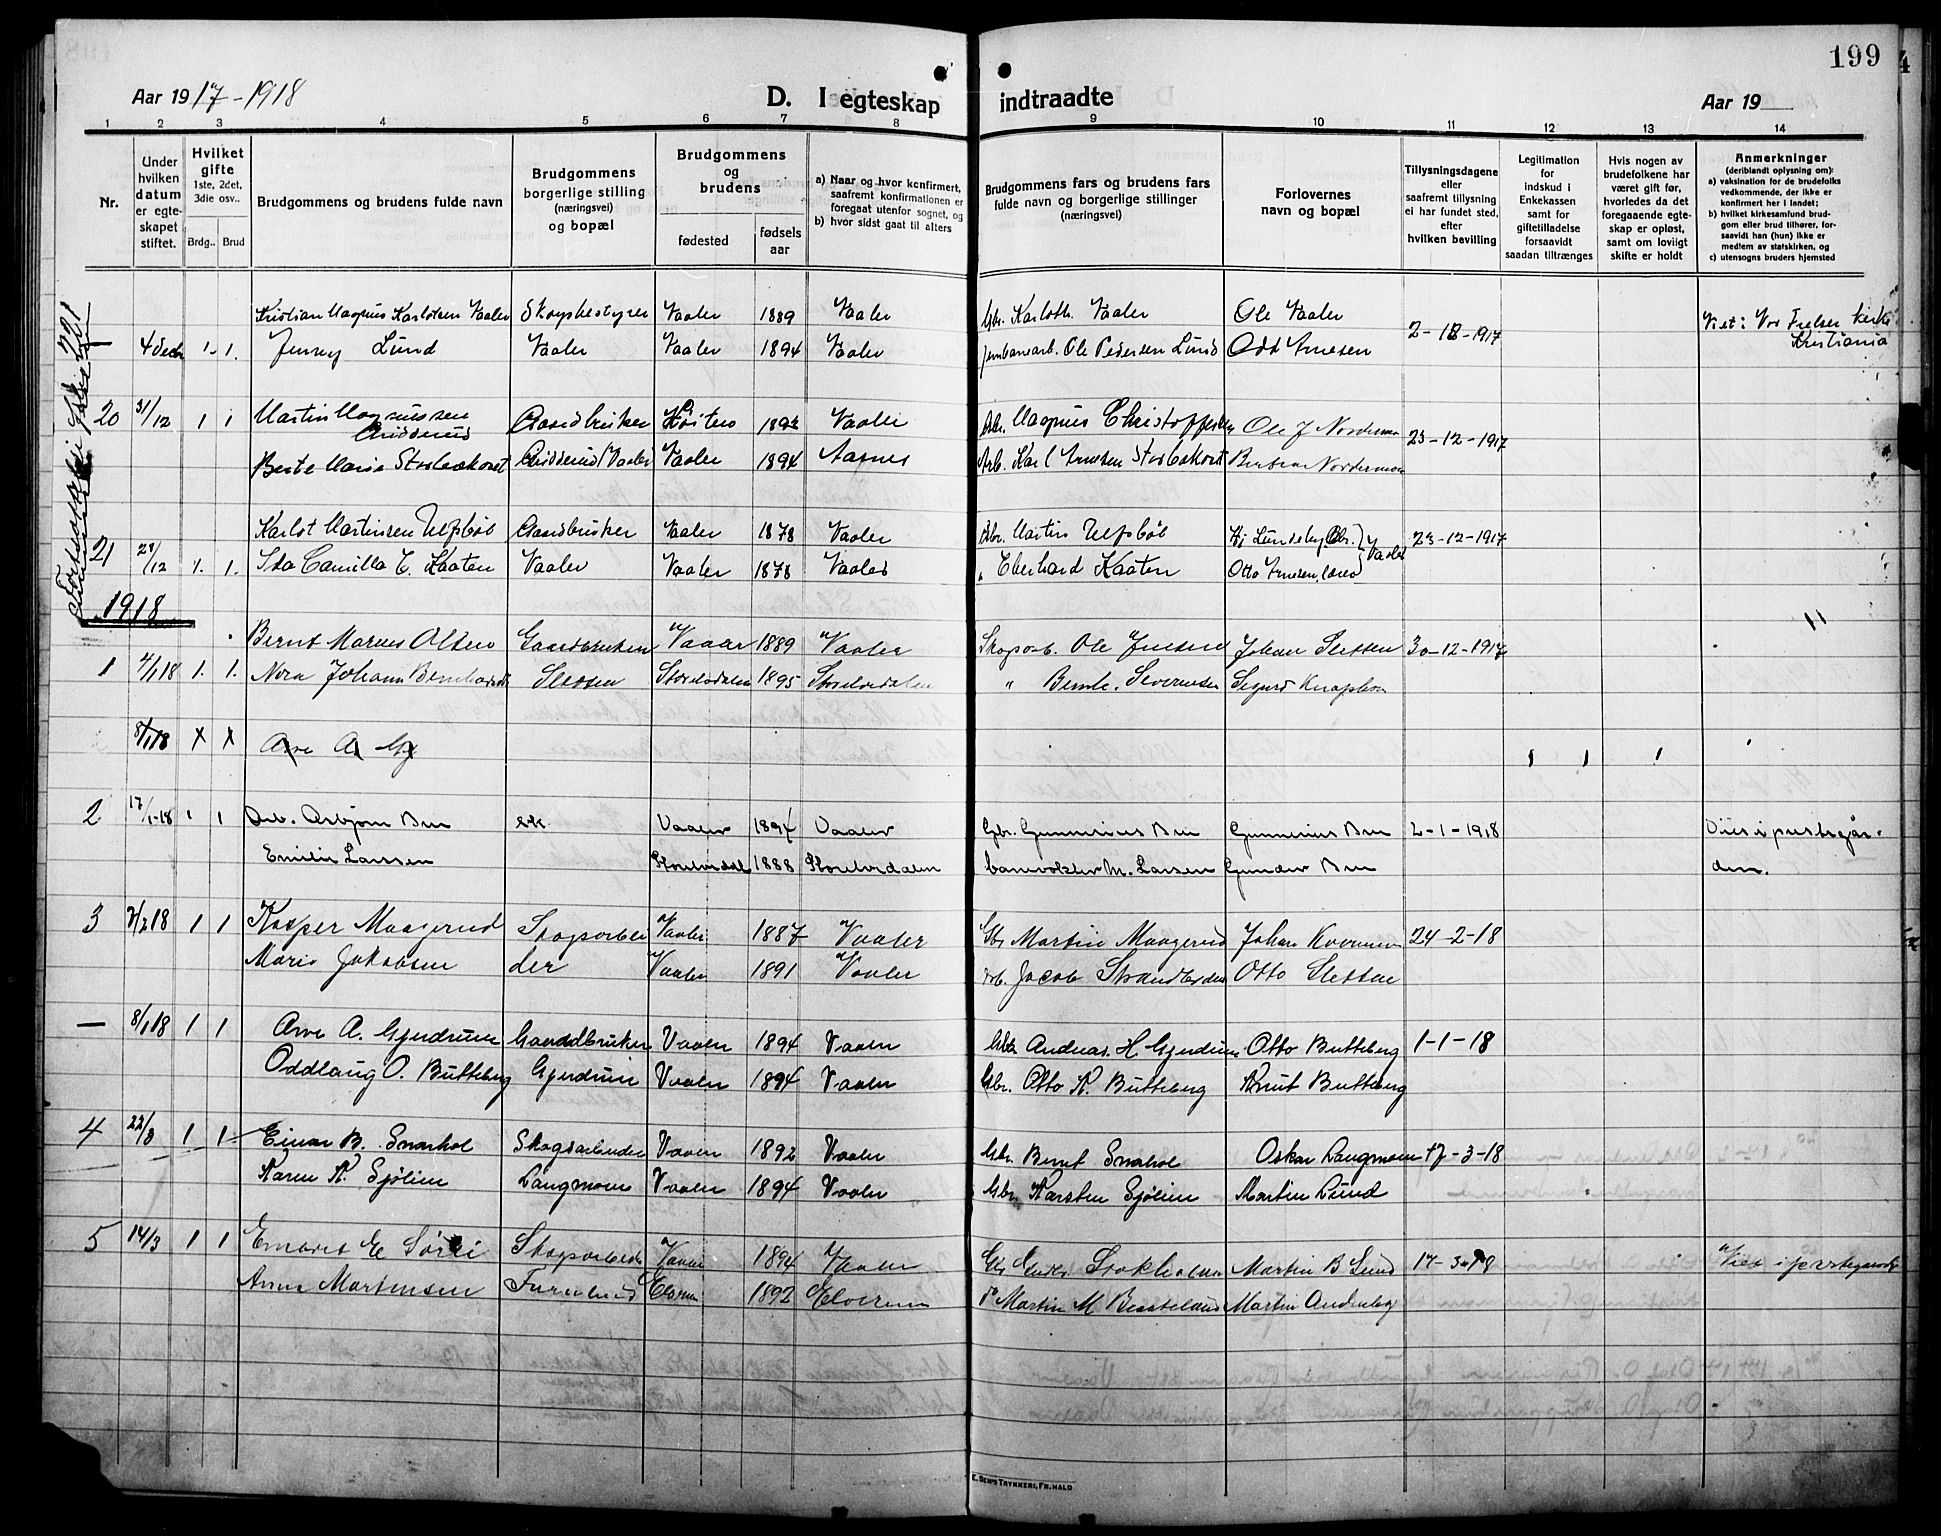 199
Aar 1917-1918
D. I egteskap indtraadte
Aar 19
1 2 3 4 5 6 7 8 9 10 11 12 13 14
Nr.
Under hvilken datum er egteskapet stiftet.
Hvilket gifte 1ste, 2det, 3die osv..
Brdg.. Brud
Brudgommens og brudens fulde navn
Brudgommens borgerlige stilling (næringsvei) og bopæl
Brudgommens og brudens
fødested
fødsels aar
a) Naar og hvor konfirmert, saafremt konfirmationen er foregaat utenfor sognet, og
b) hvor sidst gaat til alters
Brudgommens fars og brudens fars fulde navn og borgerlige stillinger (næringsvei)
Forlovernes navn og bopæl
Tillysningsdagene eller saafremt tillysning ei har fundet sted, efter hvilken bevilling
Legitimation for indskud i Enkekassen samt for giftetilladelse forsaavidt saadan tiltrænges
Hvis nogen av brudefolkene har været gift før, hvorledes da det foregaaende egteskap er opløst, samt om lovligt skifte er holdt
Anmerkninger
(deriblandt oplysning om):
a) vaksination for de brudefolks vedkommende, der ikke er konfirmert her i landet;
b) hvilket kirkesamfund brudgom eller brud tilhører, forsaavidt han (hun) ikke er medlem av statskirken, og
c) utensogns bruders hjemsted
Kristian Magnus Karlstsen Vaaler Skogbestyrer Vaaler 1889 Vaaler Gbr. Karl Vaaler Ole Vaaler 2-12-1917 Viet: Vor Frelser kirke
4 Decbr 1. 1. Jenny Lund Vaaler Vaaler 1894 Vaaler jernbanearb. Ole Pedersen Lund Odd Arnesen Kristiania
20 31/12 1 1 Martin Magnussen Gaardbruker 1892 Vaaler Magnus Christoffersen Ole J Nordermo 23-12-1917
Berte Maria Storbækoret Vaaler 1894 Aasnes Arb. Karl Arnesen Storbækoret Nordermoen
Karlot Martinsen Ulfsbøl Gaardbruker Vaaler 1878 Vaaler Gbr. Martin Ulfsbøl Hj Lundeby Gbr. } Vaaler 23-12-1917
21 28/12 1. 1. Ida Camilla E. Kaaten Vaaler Vaaler 1878 Vaaler " Eberhard Kaaten Otto Arnesen, lærer
1918
Bernt Marius Olsen Gaardbruker Vaaler 1889 Vaaler Skogarb. Ole Johan Sletten 30-12-1917
1 4/1 18 1. 1. Nora Johanne Bernhardsd. Sletten Storelvdalen 1895 Storelvdalen " Bernh. Severinsen Sigurd Knapholen
8/1 18 x x Arve A. Gj
2 17/1-18 1 1 Arb. Asbjørn Bru Vaaler 1894 Vaaler Gbr. Gunnerius Bru Gunnerius Bru 2-1-1918 Viet i prestegår-
Emilie Larssen Storelvdal 1888 Storelvdalen banevokter M. Larsen Gunder Bru den.
3 1 1 Kasper Maagerud Skogsarbei Vaaler 1887 Vaaler Gbr Martin Maagerud Johan 24-2-18
Marie Jakobsen der Vaaler 1891 Vaaler Arb. Jacob Otto Sletten
— 8/1 18 1 1 Arve A. Gjendrum Gaardbruker Vaaler 1894 Vaaler Gbr Andreas H Gjendrum Otto Butteberg 1-1-18
Oddlaug O. Butteberg Gjendrum Vaaler 1894 Vaaler Gbr. Otto K. Butteberg Knut Butteberg
4 22/3 1 1 Einar B. Snarhol Skogsarbeider Vaaler 1892 Vaaler Gbr. Bernt Snarhol Oskar Langmoen 17-3-18
Karen K. Sjølien Langmoen Vaaler 1894 Vaaler Gbr Karsten Sjølien Martin Lund
5 14/3 1 1 E Skogsarbeider Vaaler 1894 Vaaler Gbr Martin B Lund 17-3-18 Viet i prestegaarden
Anne Martinsen Furulund Elverum 1892 Elverum Martin M Martin
E. SEM'S TRYKKERI, FR.HALD